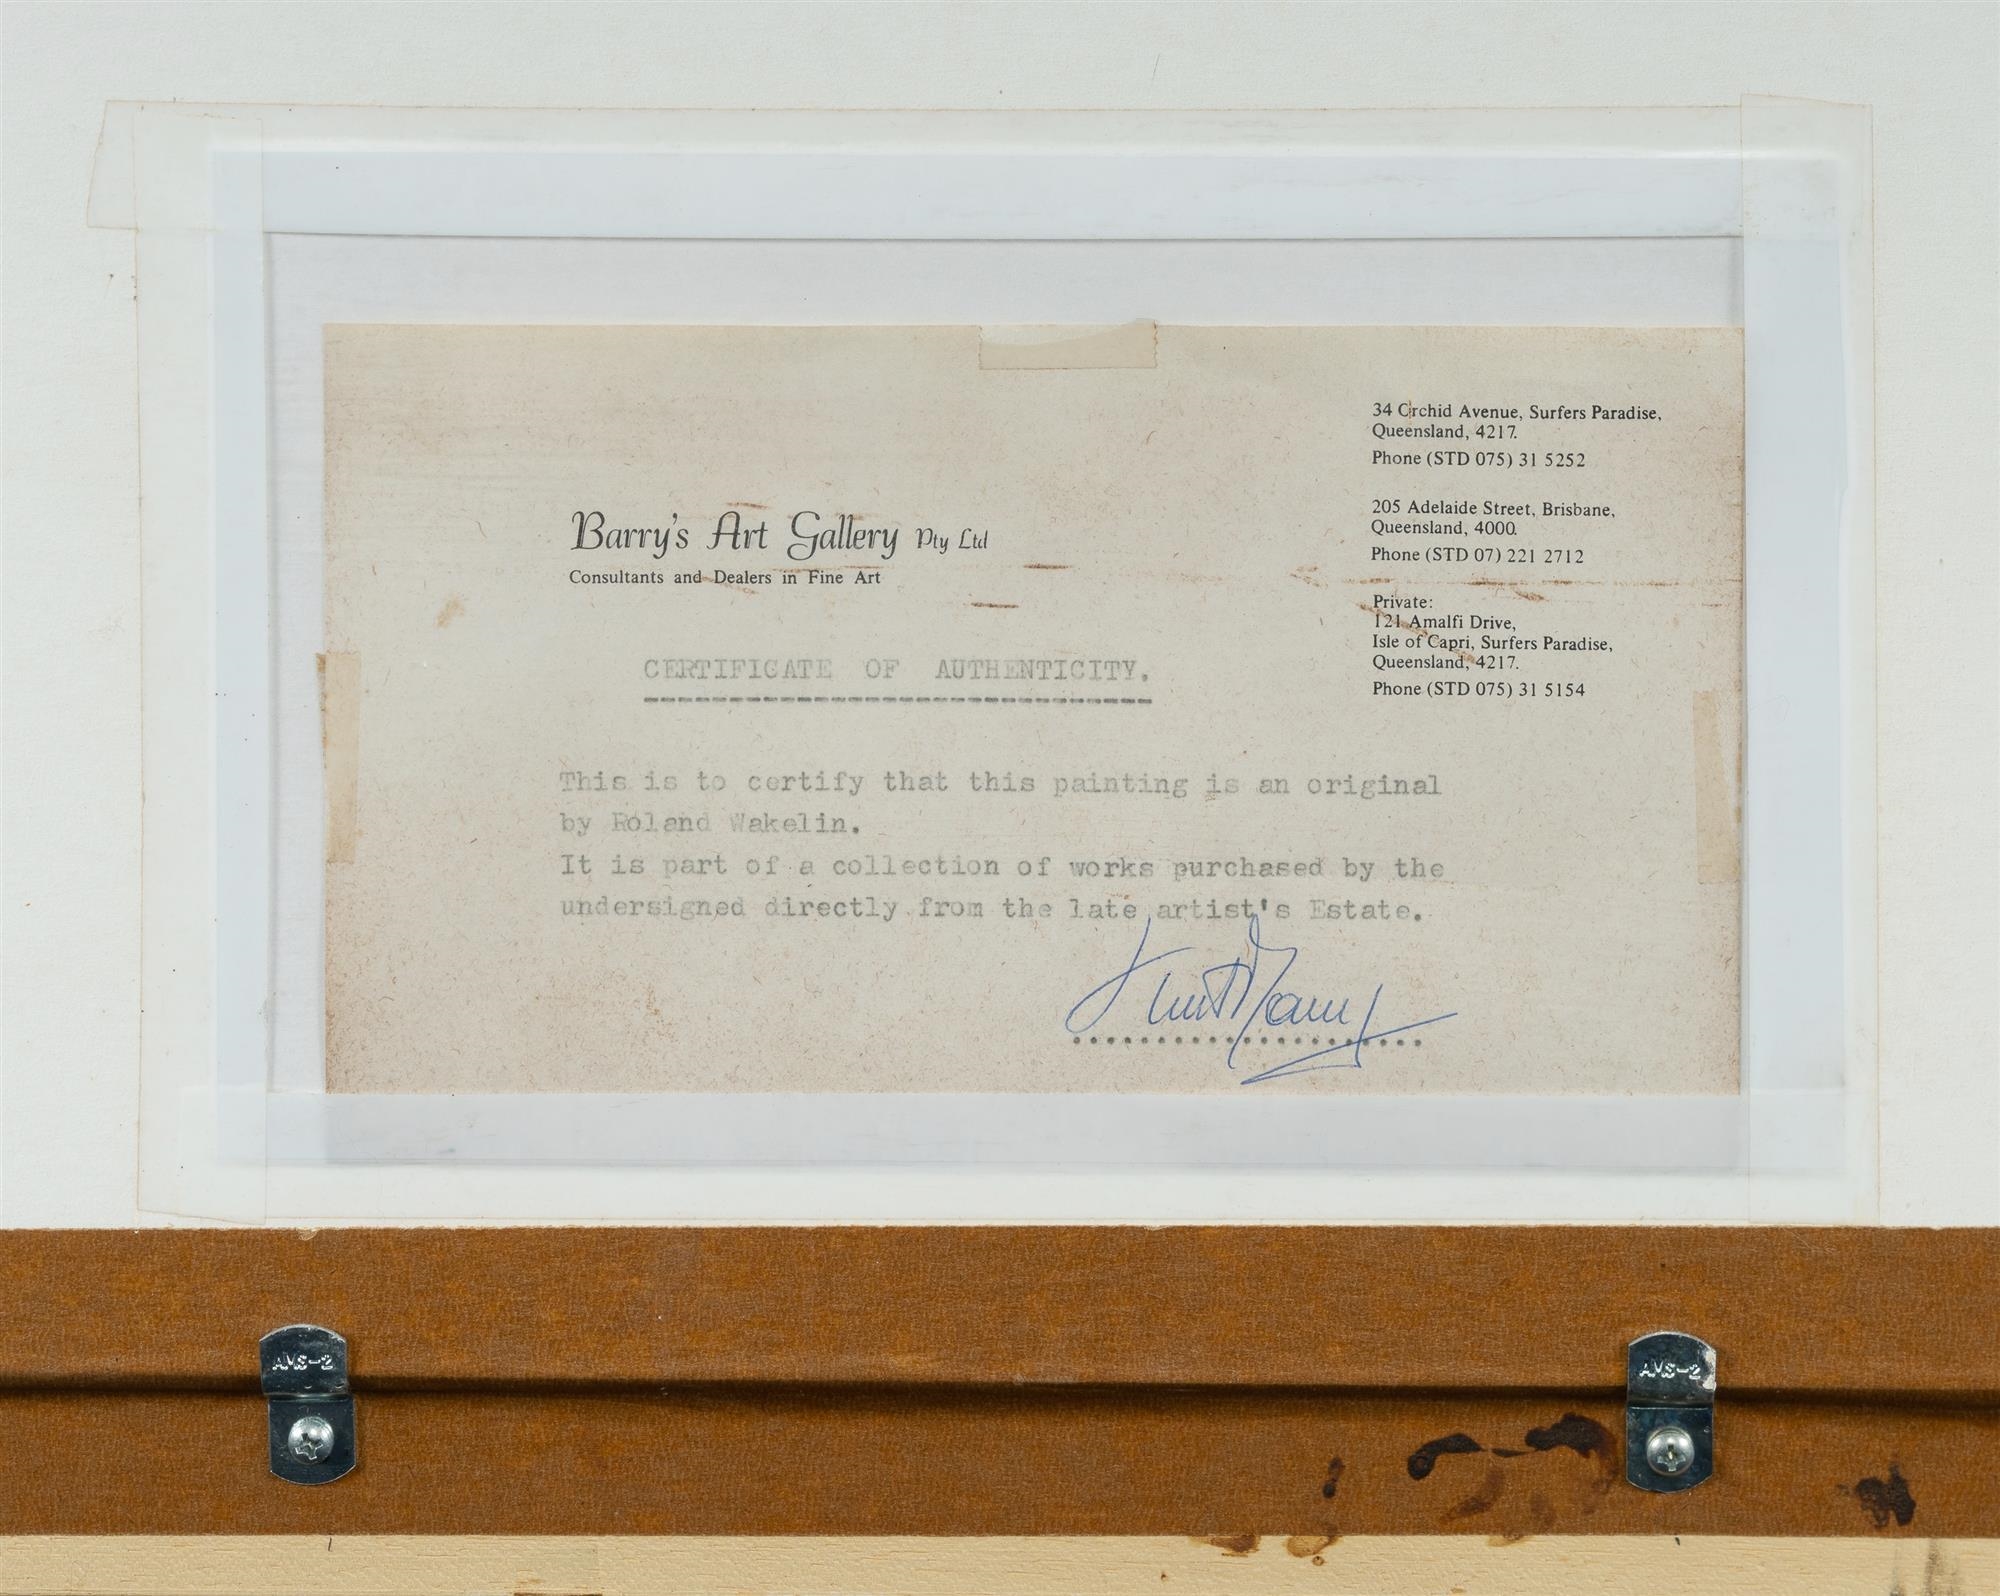 34 Orchid Avenue, Surfers Paradise,
Queensland, 4217.
Phone (STD 075) 31 5252
205 Adelaide Street, Brisbane,
Queensland, 4000.
Phone (STD 07) 221 2712
Private:
121 Amalfi Drive,
Isle of Capri, Surfers Paradise,
Queensland, 4217.
Phone (STD 075) 31 5154
Barry's Art Gallery Pty Ltd
Consultants and Dealers in Fine Art
CERTIFICATE OF AUTHENTICITY.
This is to certify that this painting is an original
by Roland Wakelin.
It is part of a collection of works purchased by the
undersigned directly from the late artist's Estate.
AMS-2
AMS-2